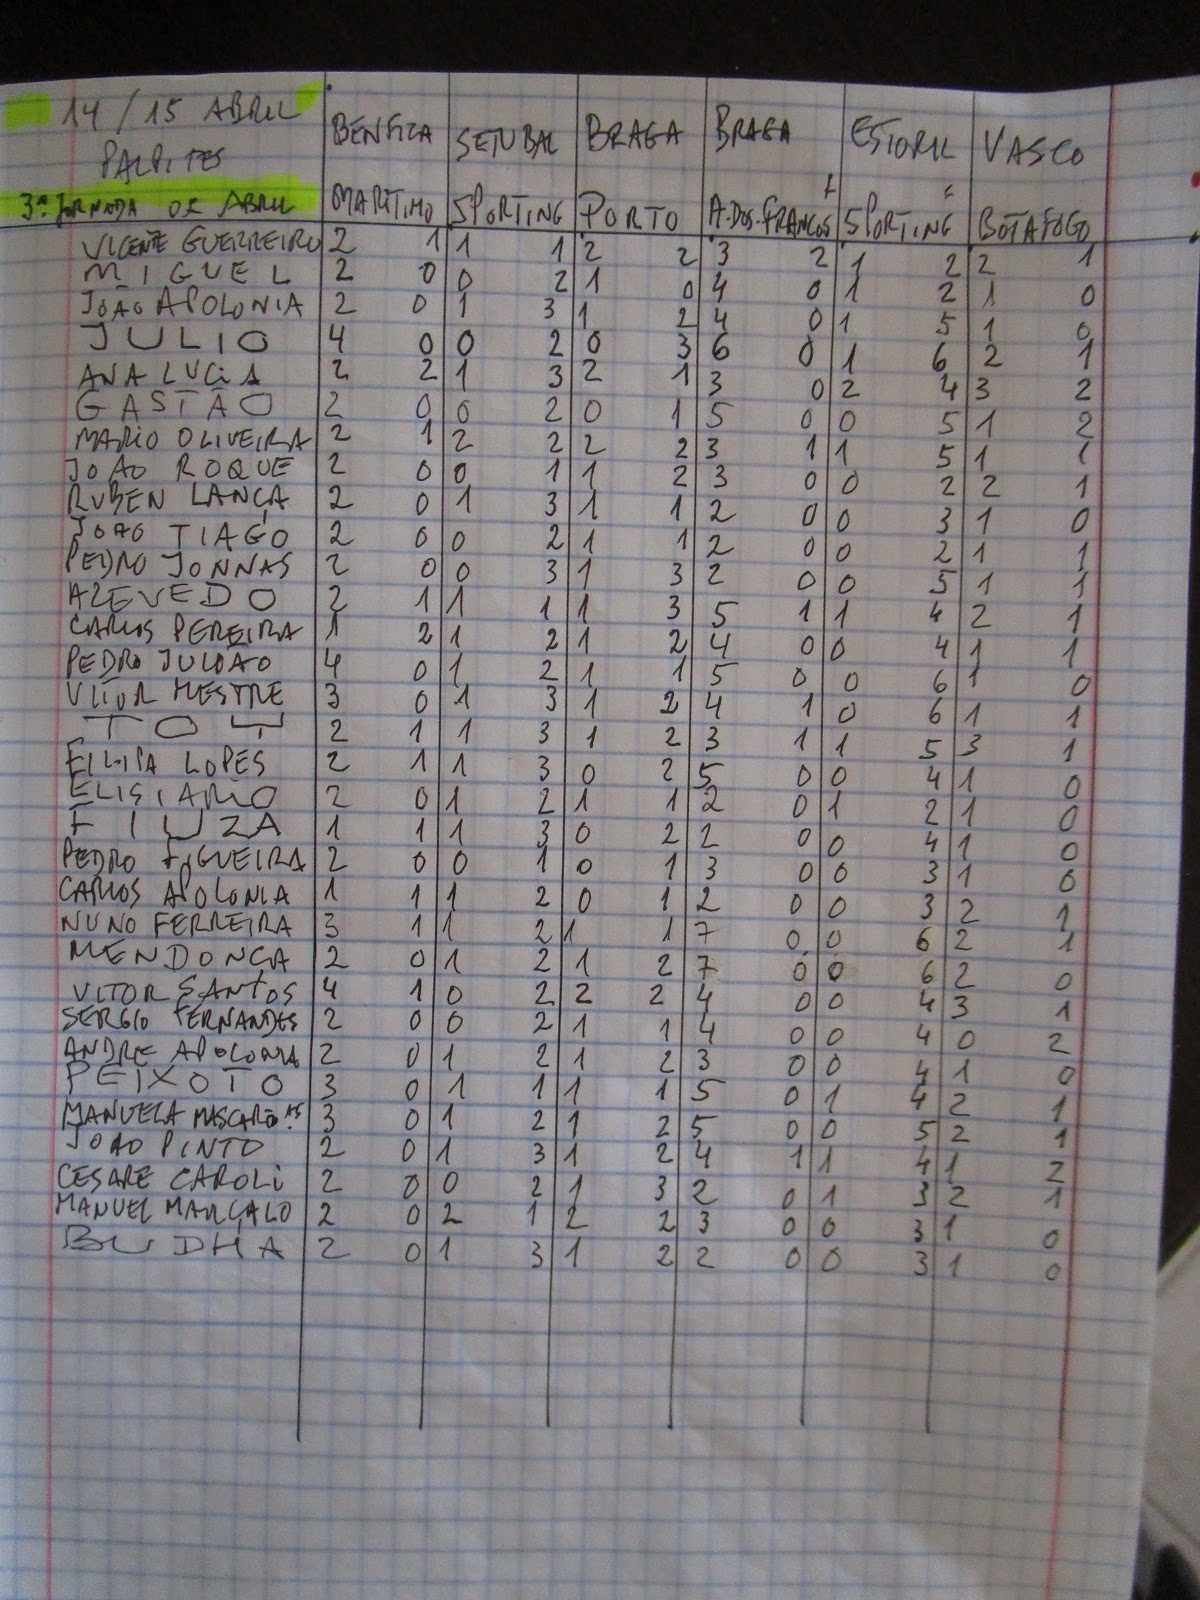 14/15 ABRIL BENFICA SETUBAL BRAGA BRAGA ESTORIL VASCO
PALPITES
3ª JORNADA DE ABRIL MARITIMO SPORTING PORTO A-DOS-FRANCOS SPORTING BOTAFOGO
VICENTE GUERREIRO 2 1 1 1 2 2 3 2 1 2 2 1
MIGUEL 2 0 0 2 1 0 4 0 1 2 1 0
JOÃO APOLONIA 2 0 1 3 1 2 4 0 1 5 1 0
JULIO 4 0 0 2 0 3 6 0 1 6 2 1
ANA LUCIA 2 2 1 3 2 1 3 0 2 4 3 2
GASTÃO 2 0 0 2 0 1 5 0 0 5 1 2
MARIO OLIVEIRA 2 1 2 2 2 2 3 1 1 5 1 1
JOAO ROQUE 2 0 0 1 1 2 3 0 0 2 2 1
RUBEN LANÇA 2 0 1 3 1 1 2 0 0 3 1 0
JOAO TIAGO 2 0 0 2 1 1 2 0 0 2 1 1
PEDRO JONNAS 2 0 0 3 1 3 2 0 0 5 1 1
AZEVEDO 2 1 1 1 1 3 5 1 1 4 2 1
CARLOS PEREIRA 1 2 1 2 1 2 4 0 0 4 1 1
PEDRO JULIÃO 4 0 1 2 1 1 5 0 0 6 1 0
VITOR MESTRE 3 0 1 3 1 2 4 1 0 6 1 1
TOY 2 1 1 3 1 2 3 1 1 5 3 1
FILIPA LOPES 2 1 1 3 0 2 5 0 0 4 1 0
ELISIARIO 2 0 1 2 1 1 2 0 1 2 1 0
FIUZA 1 1 1 3 0 2 2 0 0 4 1 0
PEDRO FIGUEIRA 2 0 0 1 0 1 3 0 0 3 1 0
CARLOS APOLONIA 1 1 1 2 0 1 2 0 0 3 2 1
NUNO FERREIRA 3 1 1 2 1 1 7 0 0 6 2 1
MENDONCA 2 0 1 2 1 2 7 0 0 6 2 0
VITOR SANTOS 4 1 0 2 2 2 4 0 0 4 3 1
SERGIO FERNANDES 2 0 0 2 1 1 4 0 0 4 0 2
ANDRE APOLONIA 2 0 1 2 1 2 3 0 0 4 1 0
PEIXOTO 3 0 1 1 1 1 5 0 1 4 2 1
MANUELA MASCARÕ.AS 3 0 1 2 1 2 5 0 0 5 2 1
JOAO PINTO 2 0 1 3 1 2 4 1 1 4 1 2
CESARE CAROLI 2 0 0 2 1 3 2 0 1 3 2 1
MANUEL MARÇALO 2 0 2 1 2 2 3 0 0 3 1 0
BUDHA 2 0 1 3 1 2 2 0 0 3 1 0